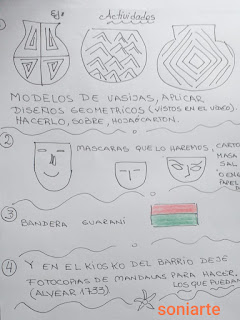 Ej:
Actividades
MODELOS DE VASIJAS, APLICAR
DISEÑOS GEOMETRICOS (VISTOS EN EL VIDEO).
HACERLO, SOBRE, HOJA ó CARTON.
2
MASCARAS QUE LO HAREMOS, CARTO
MASA
SAL
O EN
PAPEL
3
BANDERA GUARANÍ
4 Y EN EL KIOSKO DEL BARRIO DEJE
FOTOCOPIAS DE MANDALAS PARA HACER,
(ALVEAR 1733) LOS QUE PUEDAN
soniarte